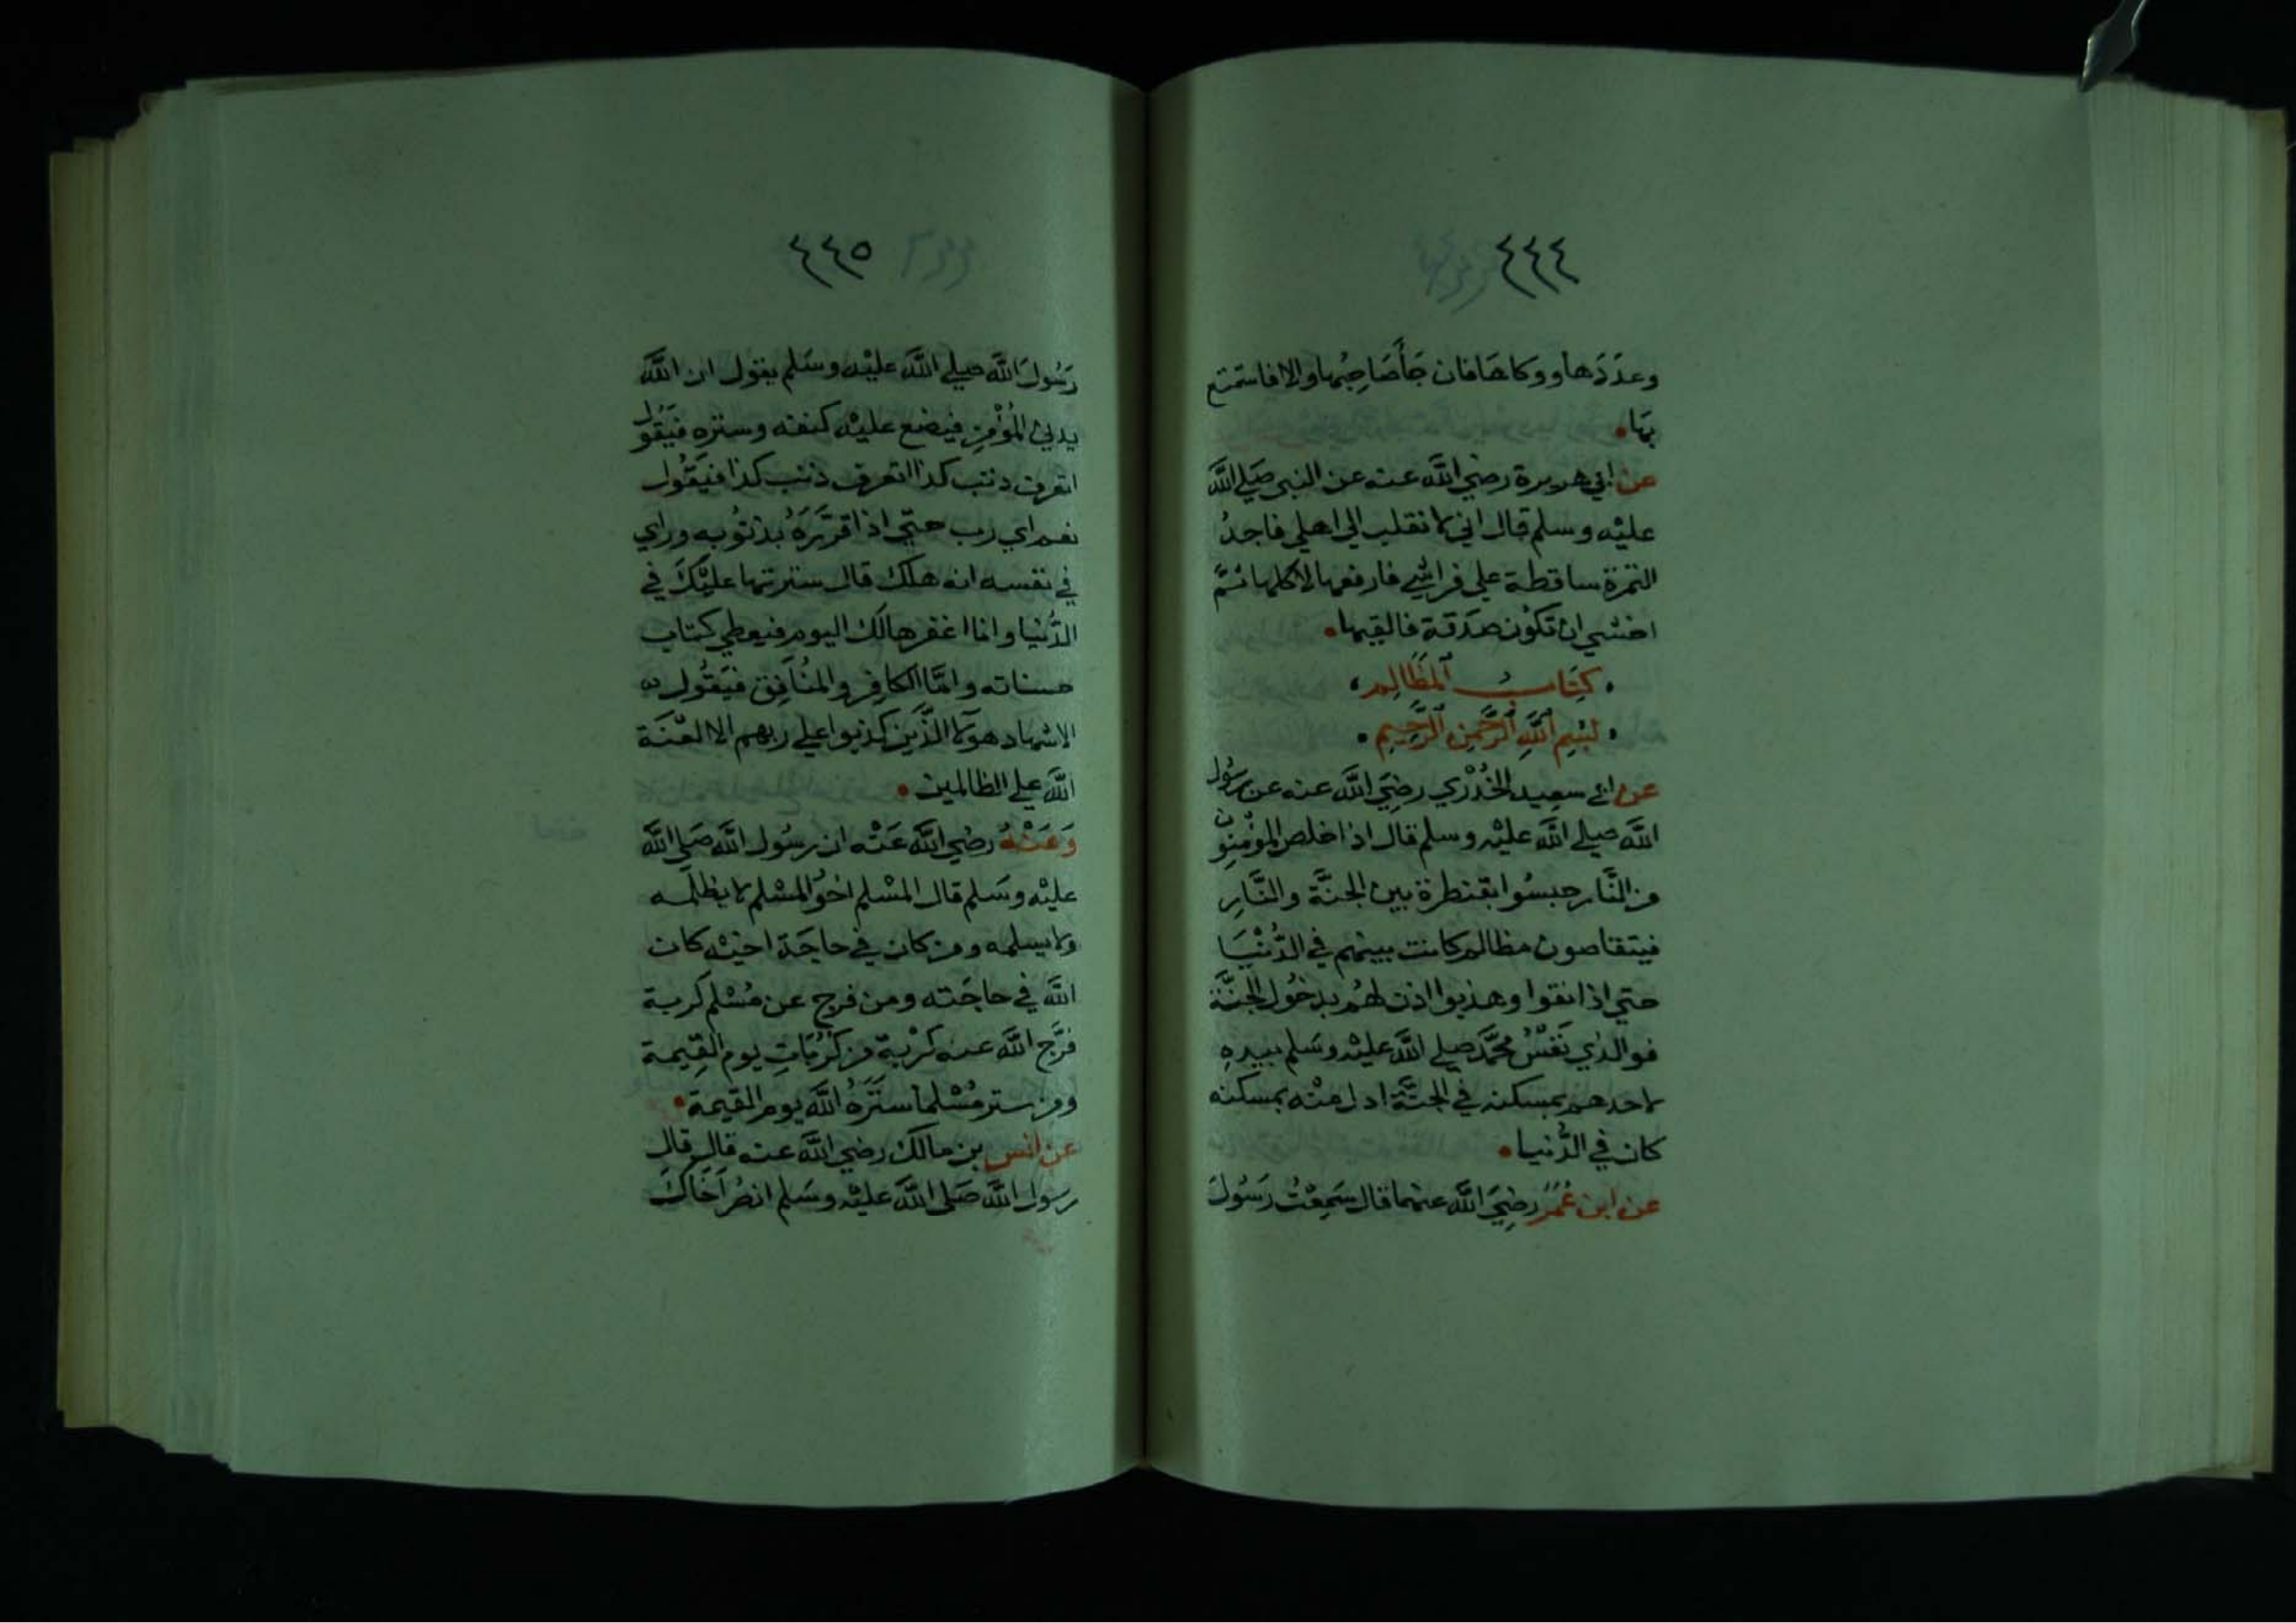 ٤٤٤
وعدَدَها ووكاها فان جَأصَاحِبُها والا فاستمتع
بهَا
عن ابي هريرة رضي اللَّه عنه عن النبي صَلي اللَّه
عليْه وسلم قال اني لانقلب الي اهلي فاجدُ
التمرة ساقطة علي فراشي فارفعها لاكلها ثمَّ
اخشي ان تكوْن صَدَقة فالقيها
كِتَابُ المظَالِم
بِسْمِ اللَّهِ الرَّحْمنِ الرَّحِيمِ
عن ابي سعِيد الخُدْري رضِيَ اللَّه عنه عن رسُول
اللَّه صلي اللَّه عليْه وسلم قال اذا خلص المؤمِنون
من النَّار حبسُوا بقنطرة بين الجنَّة والنَّارِ
فيتقاصون مظالم كانت بينهم في الدُّنْيَا
حتي اذا نقوا وهذبوا اذن لهُم بدخُول الجنَّة
فوالذي نَفسُ محمَّد صلي اللَّه عليْه وسَلم بيدهِ
لاحدهم بمسكنه في الجنَّة ادل منْه بمسكنه
كان في الدُّنيا
عن ابن عُمَرَ رضِيَ اللَّه عنهما قال سَمِعْتُ رَسُولَ
٤٤٥
رَسُولَ اللَّه صلي اللَّه عليْه وسَلم يقول ان اللَّه
يدني المُؤْمِن فيضع عليْه كنفه وستره فيَقُول
اتعرف ذنب كذا اتعرف ذنب كذا فيَقُول
نعم اي رب حتَّي اذا قرَّرَهُ بذنُوبه وراي
في نفسه انه هلك قال سترتها عليْكَ في
الدُّنيا وانا اغفرها لَك اليوم فيعطي كتاب
حسناته وامَّا الكافِر والمُنَافِق فيَقُول
الاشهاد هؤلا الذَّين كذبوا علي ربهم الا لعْنَة
اللَّه علي الظالمين
وَعَنْهُ رضِي اللَّه عَنْه ان رسُول اللَّه صَلي اللَّه
عليْه وسَلم قال المسْلم اخوُ المسْلم لا يظلمه
ولا يسلمه ومن كان في حاجَة اخيْه كان
اللَّه في حاجَته ومن فرج عن مُسْلم كربة
فرَّج اللَّه عنه كرْبة من كُرُبَاتِ يوم القِيمة
ومن ستر مُسْلما ستَرَهُ اللَّه يوم القيمة
عن انس بن مالك رضي اللَّه عنه قال قال
رسول اللَّه صَلي اللَّه عليْه وسَلم انصُر اَخَاك